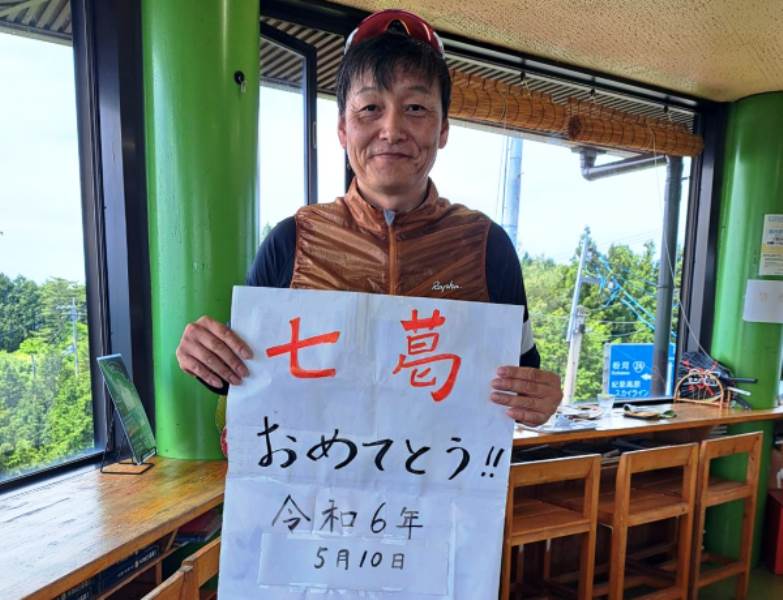 七葛
おめでとう!!
令和6年
5月10日
Rapha
粉河 24
紀泉高原
スカイライン